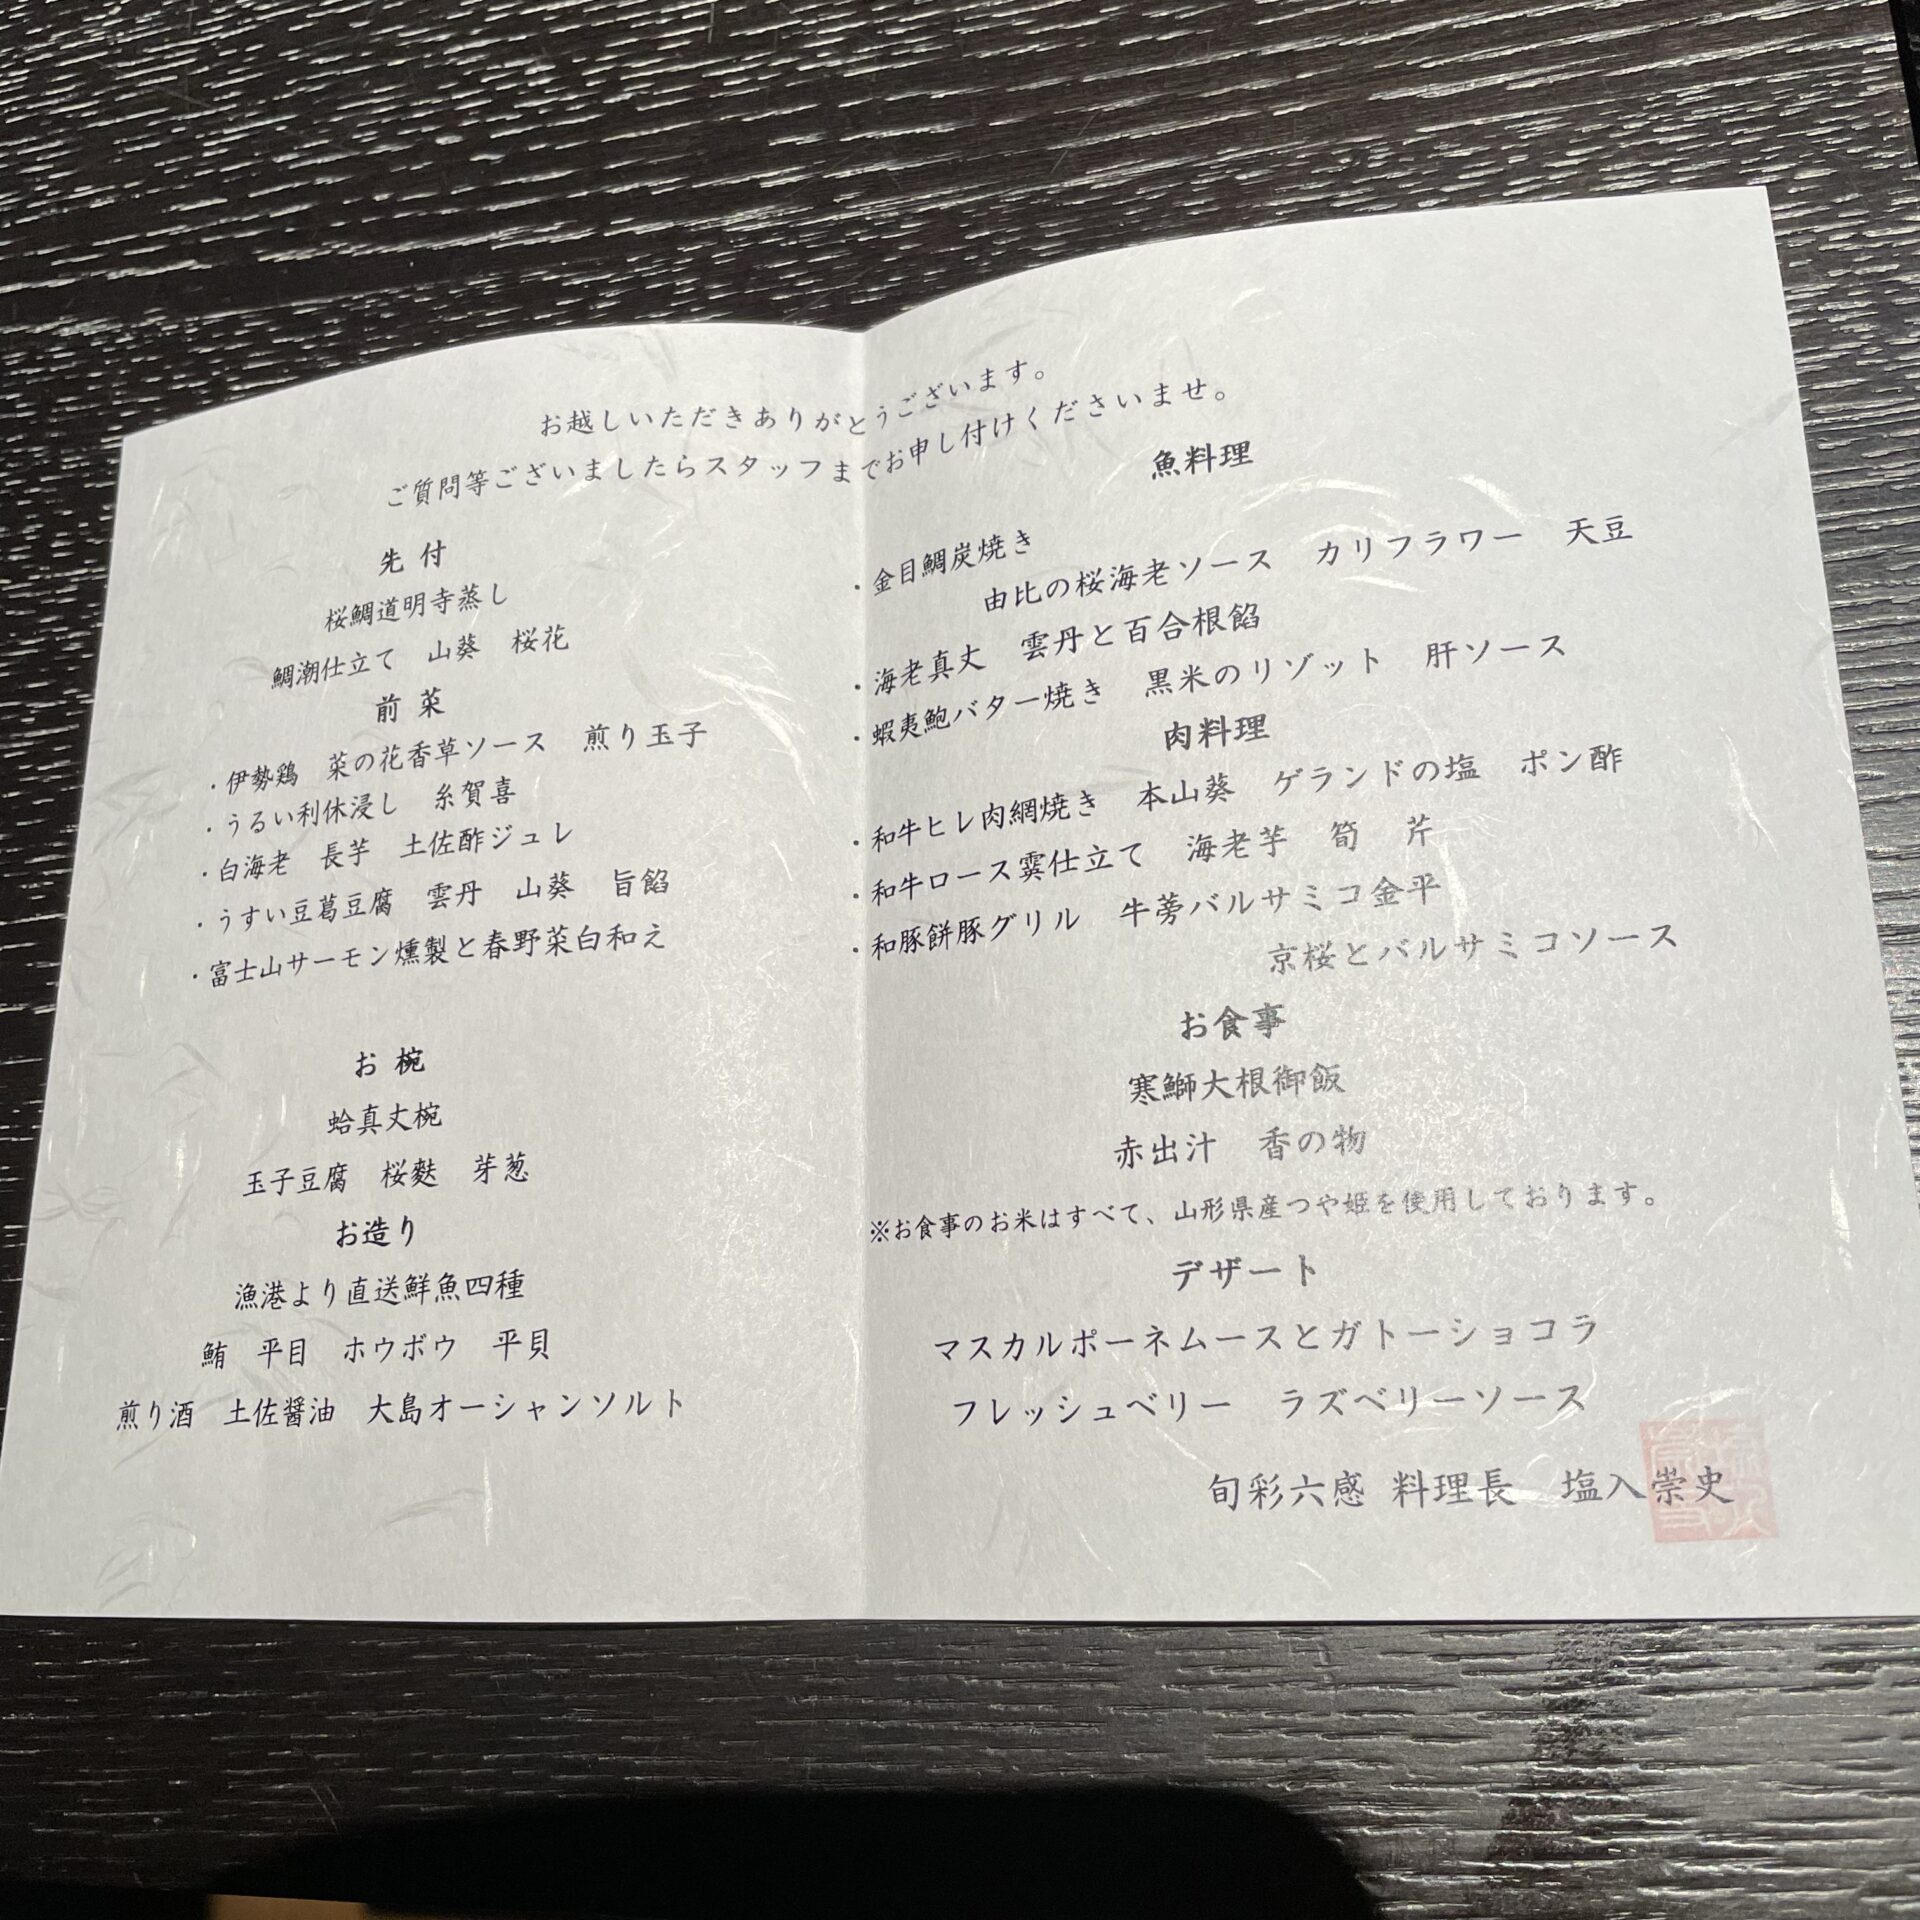 お越しいただきありがとうございます。
ご質問等ございましたらスタッフまでお申し付けくださいませ。
先 付
桜鯛道明寺蒸し
鯛潮仕立て 山葵 桜花
前 菜
・伊勢鶏 菜の花香草ソース 煎り玉子
・うるい利休浸し 糸賀喜
・白海老 長芋 土佐酢ジュレ
・うすい豆葛豆腐 雲丹 山葵 旨餡
・富士山サーモン燻製と春野菜白和え
お 椀
蛤真丈椀
玉子豆腐 桜麩 芽葱
お造り
漁港より直送鮮魚四種
鮪 平目 ホウボウ 平貝
煎り酒 土佐醤油 大島オーシャンソルト
魚料理
・金目鯛炭焼き
由比の桜海老ソース カリフラワー 天豆
・海老真丈 雲丹と百合根餡
・蝦夷鮑バター焼き 黒米のリゾット 肝ソース
肉料理
・和牛ヒレ肉網焼き 本山葵 ゲランドの塩 ポン酢
・和牛ロース霙仕立て 海老芋 筍 芹
・和豚餅豚グリル 牛蒡バルサミコ金平
京桜とバルサミコソース
お食事
寒鰤大根御飯
赤出汁 香の物
※お食事のお米はすべて、山形県産つや姫を使用しております。
デザート
マスカルポーネムースとガトーショコラ
フレッシュベリー ラズベリーソース
旬彩六感 料理長 塩入崇史